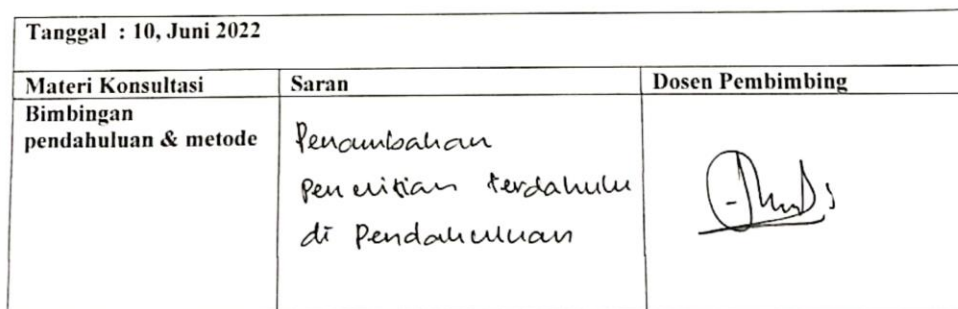 Tanggal : 10, Juni 2022
Materi Konsultasi Saran Dosen Pembimbing
Bimbingan
pendahuluan & metode
Penambahan
Penelitian terdahulu
di Pendahuluan